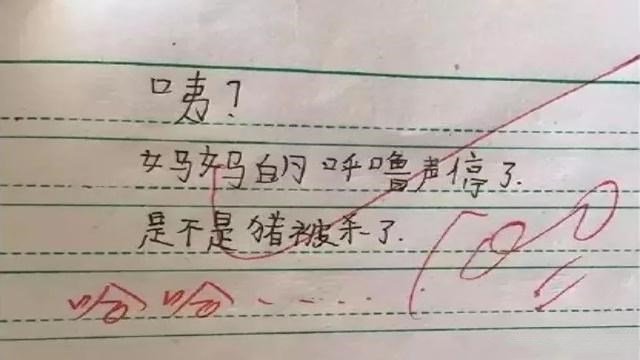 咦?
妈妈的呼噜声停了.
是不是猪被杀了.
哈哈……